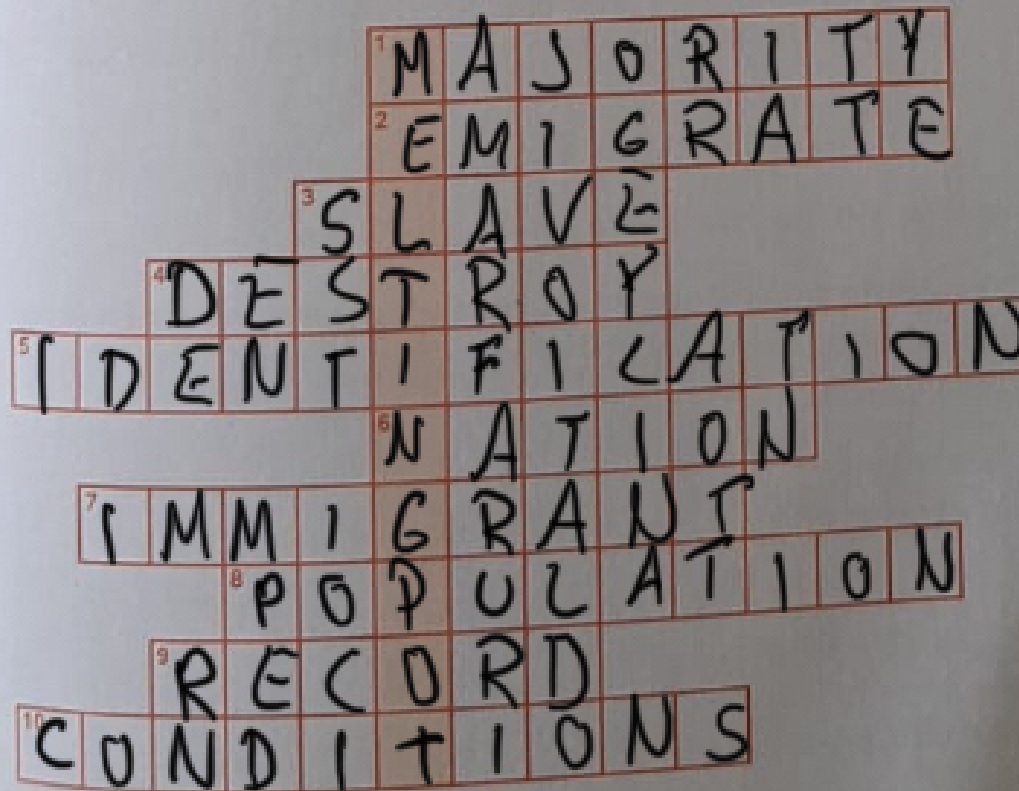 1 MAJORITY
2 EMIGRATE
3 SLAVE
4 DESTROY
5 IDENTIFICATION
6 NATION
7 IMMIGRANT
8 POPULATION
9 RECORD
10 CONDITIONS